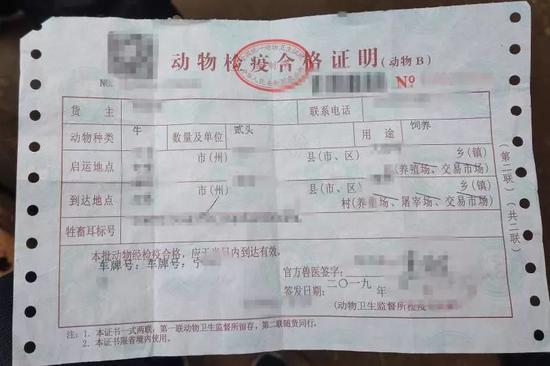 动物检疫合格证明(动物B)
NO.
№
货 主
联系电话
动物种类 牛 数量及单位 贰头 用 途 饲养
启运地点 市(州) 县(市、区) 乡(镇)
(养殖场、交易市场)
到达地点 市(州) 县(市、区) 乡(镇)
村(养殖场、屠宰场、交易市场)
牲畜耳标号
本批动物经检疫合格,应于当日内到达有效。
车牌号:车牌号:宁
官方兽医签字:
签发日期:二〇一九 年
(动物卫生监督所检疫
注:1. 本证书一式两联,第一联动物卫生监督所留存,第二联随货同行。
2. 本证书限省境内使用。
(第二联)(共二联)